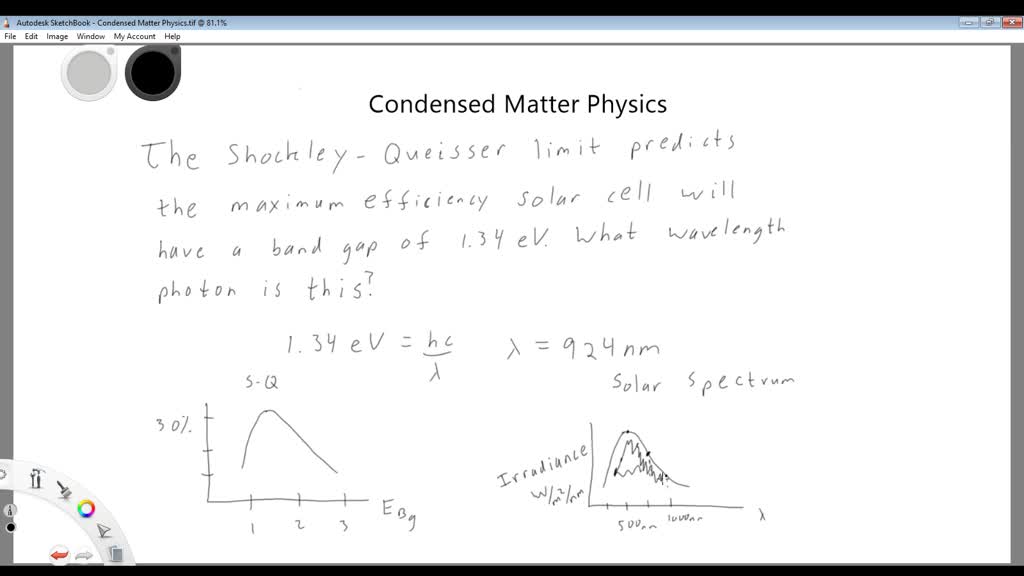 Autodesk SketchBook - Condensed Matter Physics.tif @ 81.1%
File Edit Image Window My Account Help
Condensed Matter Physics
The Shockley-Queisser limit predicts
the maximum efficiency solar cell will
have a band gap of 1.34 eV. What wavelength
photon is this?
1.34 eV = hc/λ λ = 924 nm
S-Q
Solar Spectrum
30%
Irradiance
W/m²/nm
1 2 3 EBg
500nm 1000nm λ